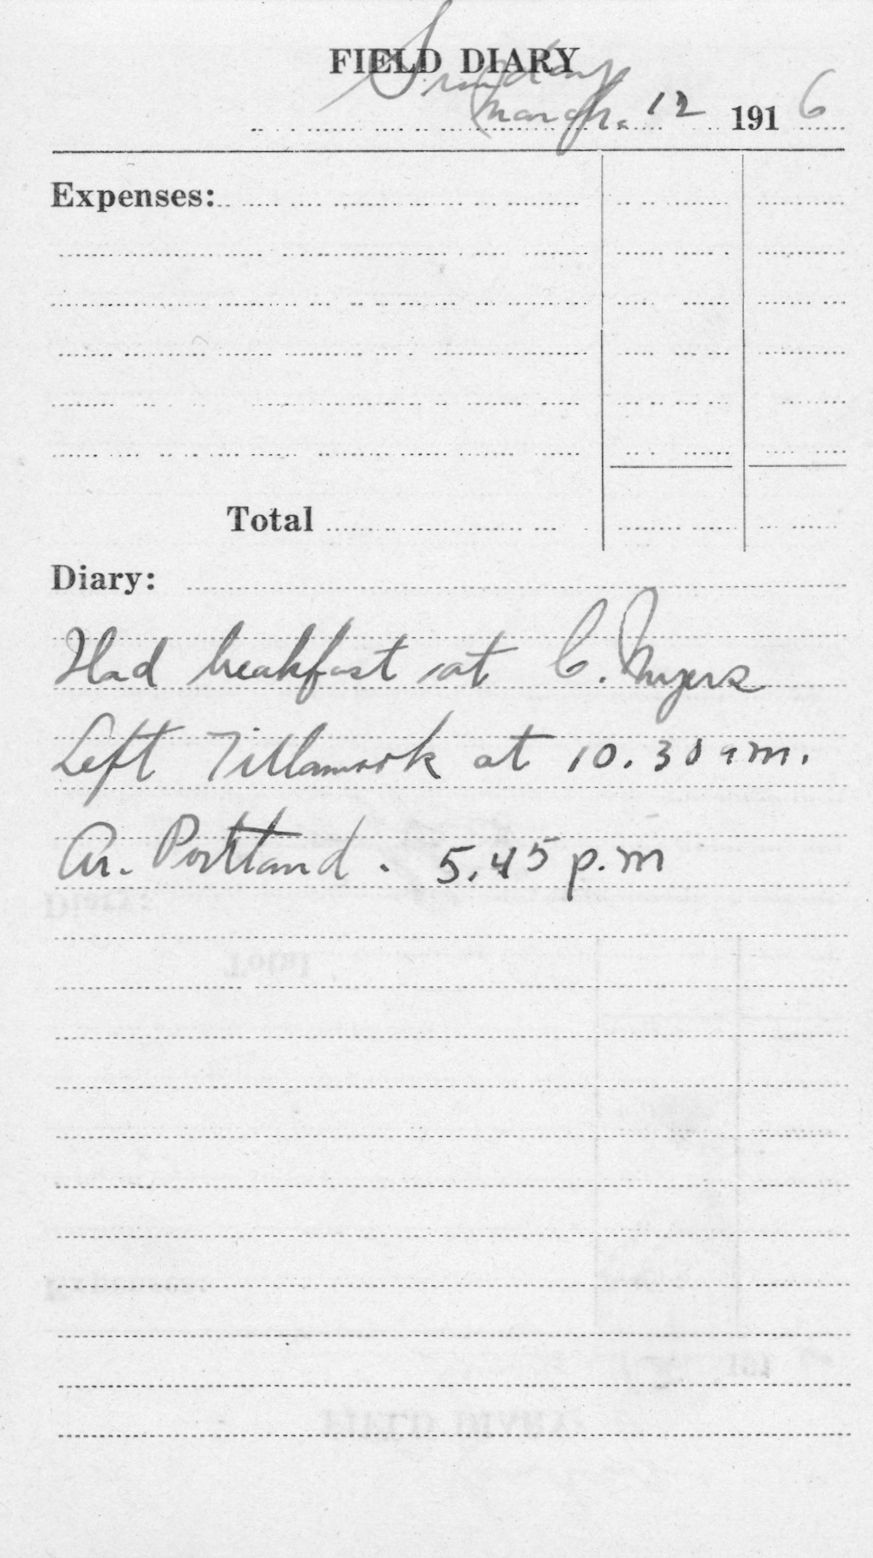 FIELD DIARY
Sunday
March. 12 1916
Expenses:
Total
Diary:
Had breakfast at C. Myers
Left Tillamook at 10.30 a m.
Ar. Portland. 5.45 p.m